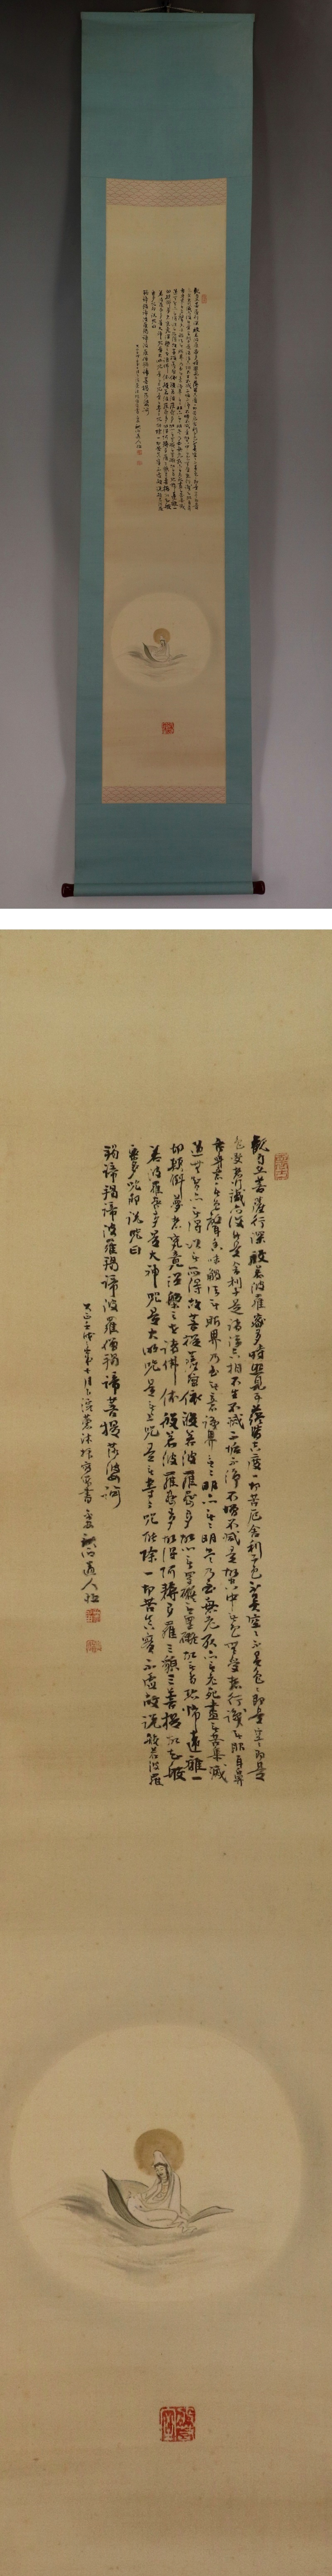 観自在菩薩行深般若波羅蜜多時照見五蘊皆空度一切苦厄舎利子色不異空空不異色色即是空空即是
色受想行識亦復如是舎利子是諸法空相不生不滅不垢不浄不増不減是故空中無色無受想行識無眼耳鼻
舌身意無色声香味触法無眼界乃至無意識界無無明亦無無明尽乃至無老死亦無老死尽無苦集滅
道無智亦無得以無所得故菩提薩埵依般若波羅蜜多故心無罣礙無罣礙故無有恐怖遠離一
切顛倒夢想究竟涅槃三世諸仏依般若波羅蜜多故得阿耨多羅三藐三菩提故知般
若波羅蜜多是大神呪是大明呪是無上呪是無等等呪能除一切苦真実不虚故説般若波羅
蜜多呪即説呪曰
羯諦羯諦波羅羯諦波羅僧羯諦菩提莎婆訶
大正壬戌 十月